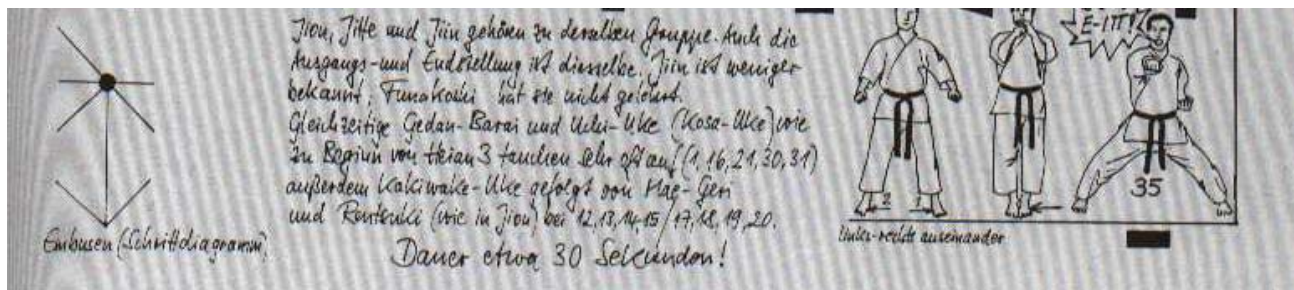 Jion, Jitte und Jiin gehören zu derselben Gruppe. Auch die
Ausgangs- und Endstellung ist diesselbe. Jiin ist weniger
bekannt, Funakoshi hat sie nicht gelehrt.
Gleichzeitige Gedan-Barai und Uchi-Uke (Kosa-Uke) wie
zu Beginn von Heian 3 tauchen sehr oft auf (1,16,21,30,31)
außerdem Kakiwake-Uke gefolgt von Mae-Geri
und Rentsuki (wie in Jion) bei 12,13,14,15/17,18,19,20.
Dauer etwa 30 Sekunden!
Embusen (Schrittdiagramm)
E-ITT!
2
1
35
links-rechts auseinander